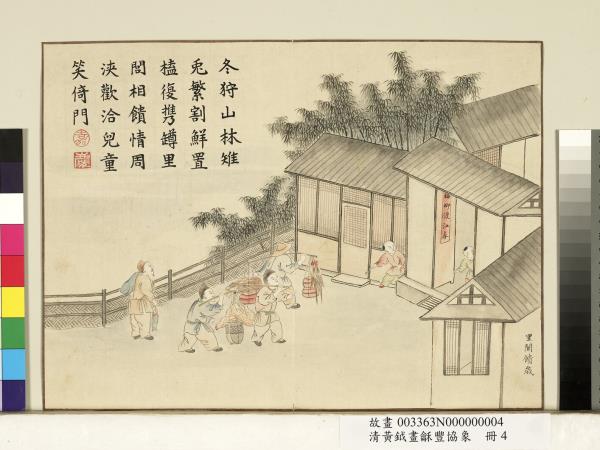 冬狩山林雉
兎繁割鮮置
榼復携罇里
閭相饋情周
浹歡洽兒童
笑倚門
里閭饋歲
故畫 003363N000000004
清黃鉞畫龢豐協象 冊 4